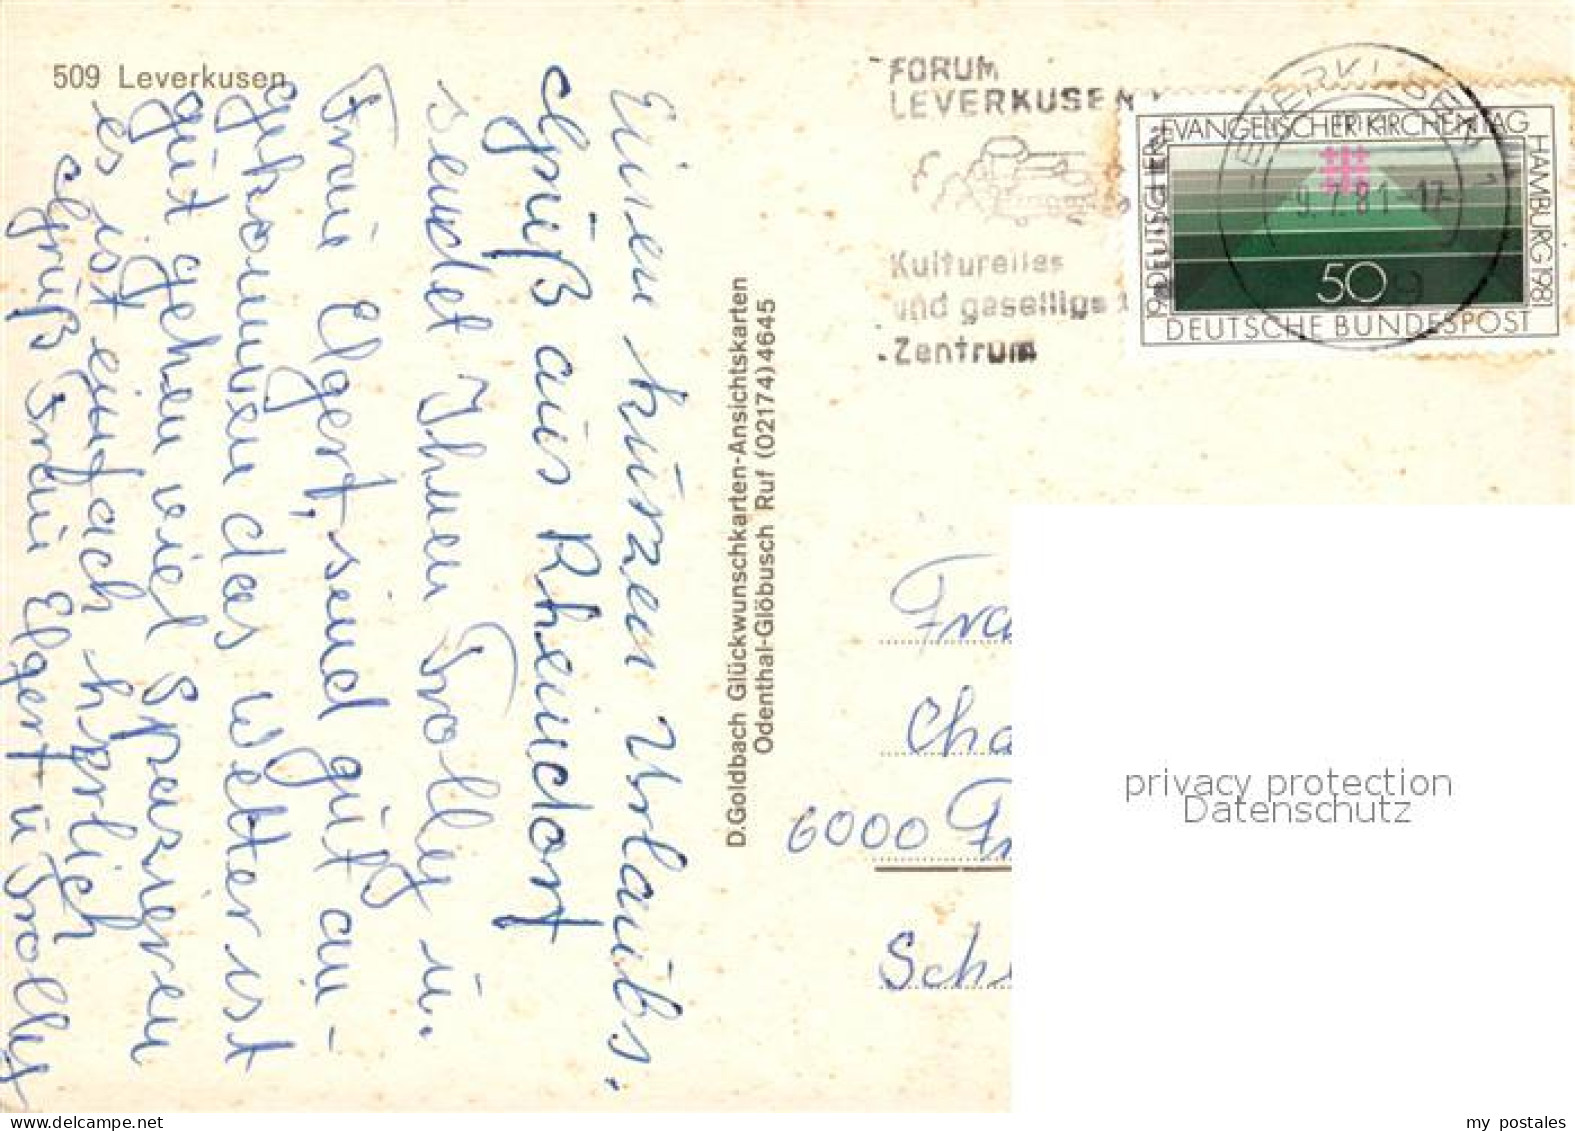 509 Leverkusen
Einen kurzen Urlaubs.
Gruß aus Rheindorf
sendet Ihnen Trolly u.
Frau Elgert, sind gut an-
gekommen das Wetter ist
gut gehen viel Spazieren
es ist einfach herrlich
Gruß Frau Elgert u Trolly
D.Goldbach Glückwunschkarten-Ansichtskarten
Odenthal-Glöbusch Ruf (02174) 4645
FORUM
LEVERKUSEN
Kulturelles
und geselliges
Zentrum
LEVERKUSEN
9.7.81-17
19. DEUTSCHER
EVANGELISCHER KIRCHENTAG
HAMBURG 1981
50
DEUTSCHE BUNDESPOST
Fra
Cha
6000 Fr
Sch
privacy protection
Datenschutz
www.delcampe.net
my_postales